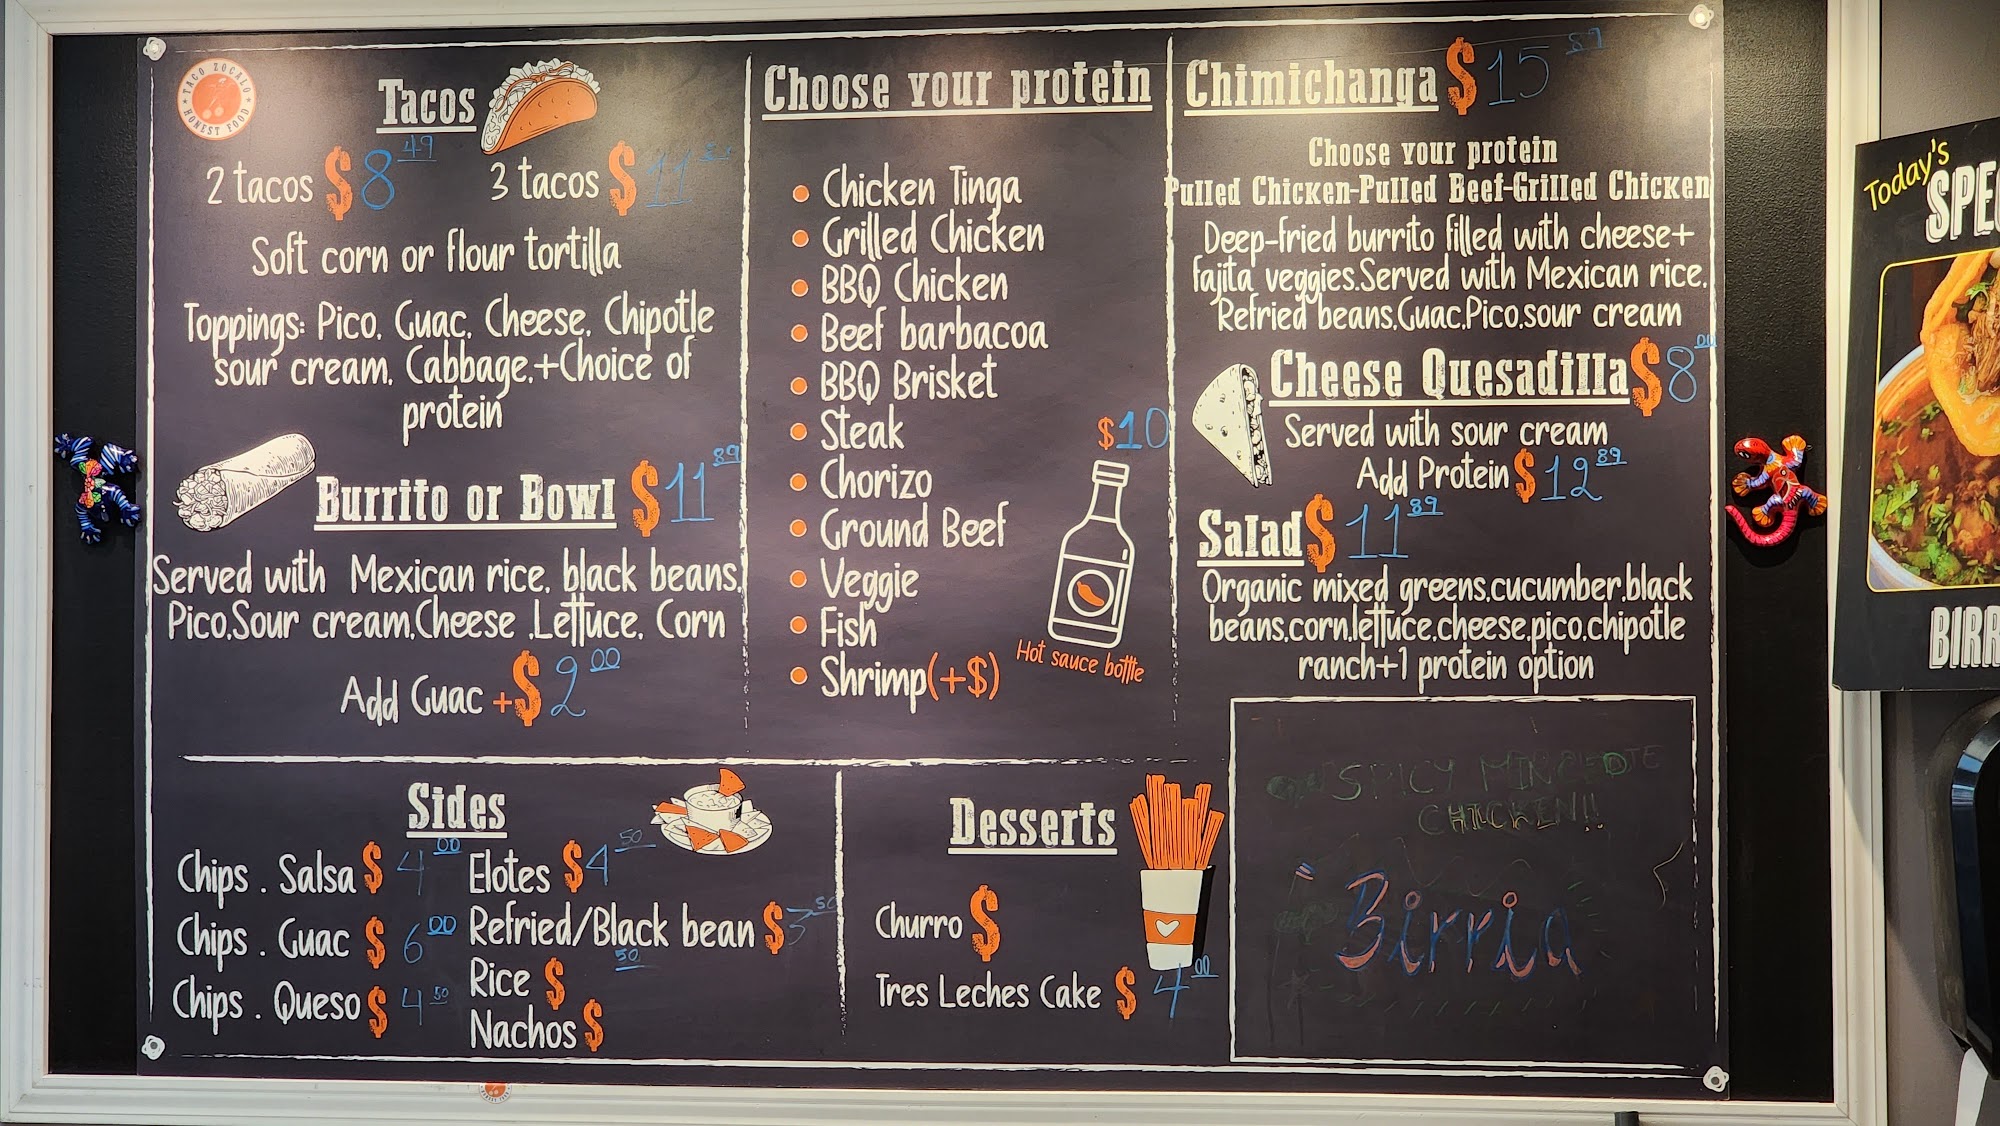 TACO ZOCALO
HONEST FOOD
Tacos
2 tacos $8 49
3 tacos $11
Soft corn or flour tortilla
Toppings: Pico, Guac, Cheese, Chipotle
sour cream, Cabbage,+Choice of
protein
Burrito or Bowl $11 89
Served with Mexican rice, black beans,
Pico,Sour cream,Cheese ,Lettuce, Corn
Add Guac +$2 00
Choose your protein
Chicken Tinga
Grilled Chicken
BBQ Chicken
Beef barbacoa
BBQ Brisket
Steak
Chorizo
Ground Beef
Veggie
Fish
Shrimp(+$)
$10
Hot sauce bottle
Chimichanga $15 89
Choose your protein
Pulled Chicken-Pulled Beef-Grilled Chicken
Deep-fried burrito filled with cheese+
fajita veggies.Served with Mexican rice,
Refried beans,Guac,Pico,sour cream
Cheese Quesadilla $8 00
Served with sour cream
Add Protein $12 89
Salad $11 89
Organic mixed greens,cucumber,black
beans,corn,lettuce,cheese,pico,chipotle
ranch+1 protein option
Sides
Chips . Salsa $4 00
Chips . Guac $6 00
Chips . Queso $4 50
Elotes $4 50
Refried/Black bean $3 50
Rice $ 50
Nachos $
Desserts
Churro $
Tres Leches Cake $4 00
SPICY
CHICKEN!!
Birria
Today's